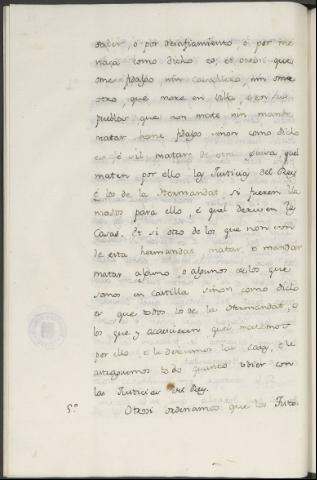 saber, o por desafiamiento, o por me
naza como dicho es; et otrosi que
ome fijodalgo nin Cavallero, nin ome
otro, que more en Villa, o en sus
pueblas que non mate nin mande
matar home fijodalgo sinon como dicho
es é si l matare de otra guisa, quel
maten por ello las Justicias del Rey
é los de la Hermandat, si fueren lla
mados para ello, é quel derriven las
Casas. Et si otro de los que non son
de esta hermandat matar, o mandar
matar alguno, o algunos de los que
somos en Castilla sinon como dicho
es que todos los de la Hermandat, o
los que y acaescieren, quel matemos
por ello é le derivemos las casas, é le
astraguemos todo quanto obier con
las Justicias del Rey.
5.º Otrosi ordenamos que los Fijos-